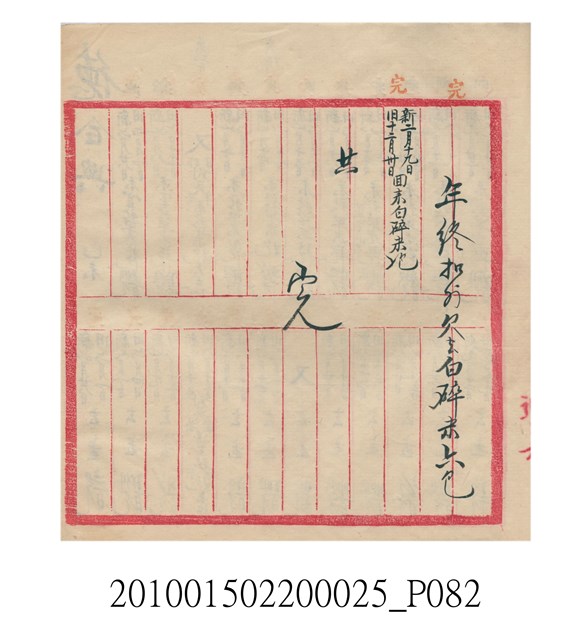 完
完
年終扣行欠去白碎米六包
新二月十九日
旧十二月卅日
回來白碎米六包
共
完
201001502200025_P082